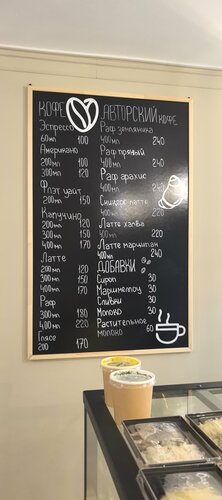 КОФЕ
Эспрессо
60мл 100
Американо
200мл 100
300мл 120
Флэт уайт
200мл 150
Капучино
200мл 120
300мл 150
400мл 170
Латте
200мл 120
300мл 150
400мл 170
Раф
300мл 180
400мл 220
Глясе
200 170
АВТОРСКИЙ КОФЕ
Раф земляника
400мл 240
Раф пряный
400мл 240
Раф арахис
400мл 240
Сникерс латте
400мл 220
Латте халва
400мл 220
Латте марципан
400мл 240
ДОБАВКИ
Сироп 30
Маршмеллоу 30
Сливки 30
Молоко 30
Растительное 60
молоко